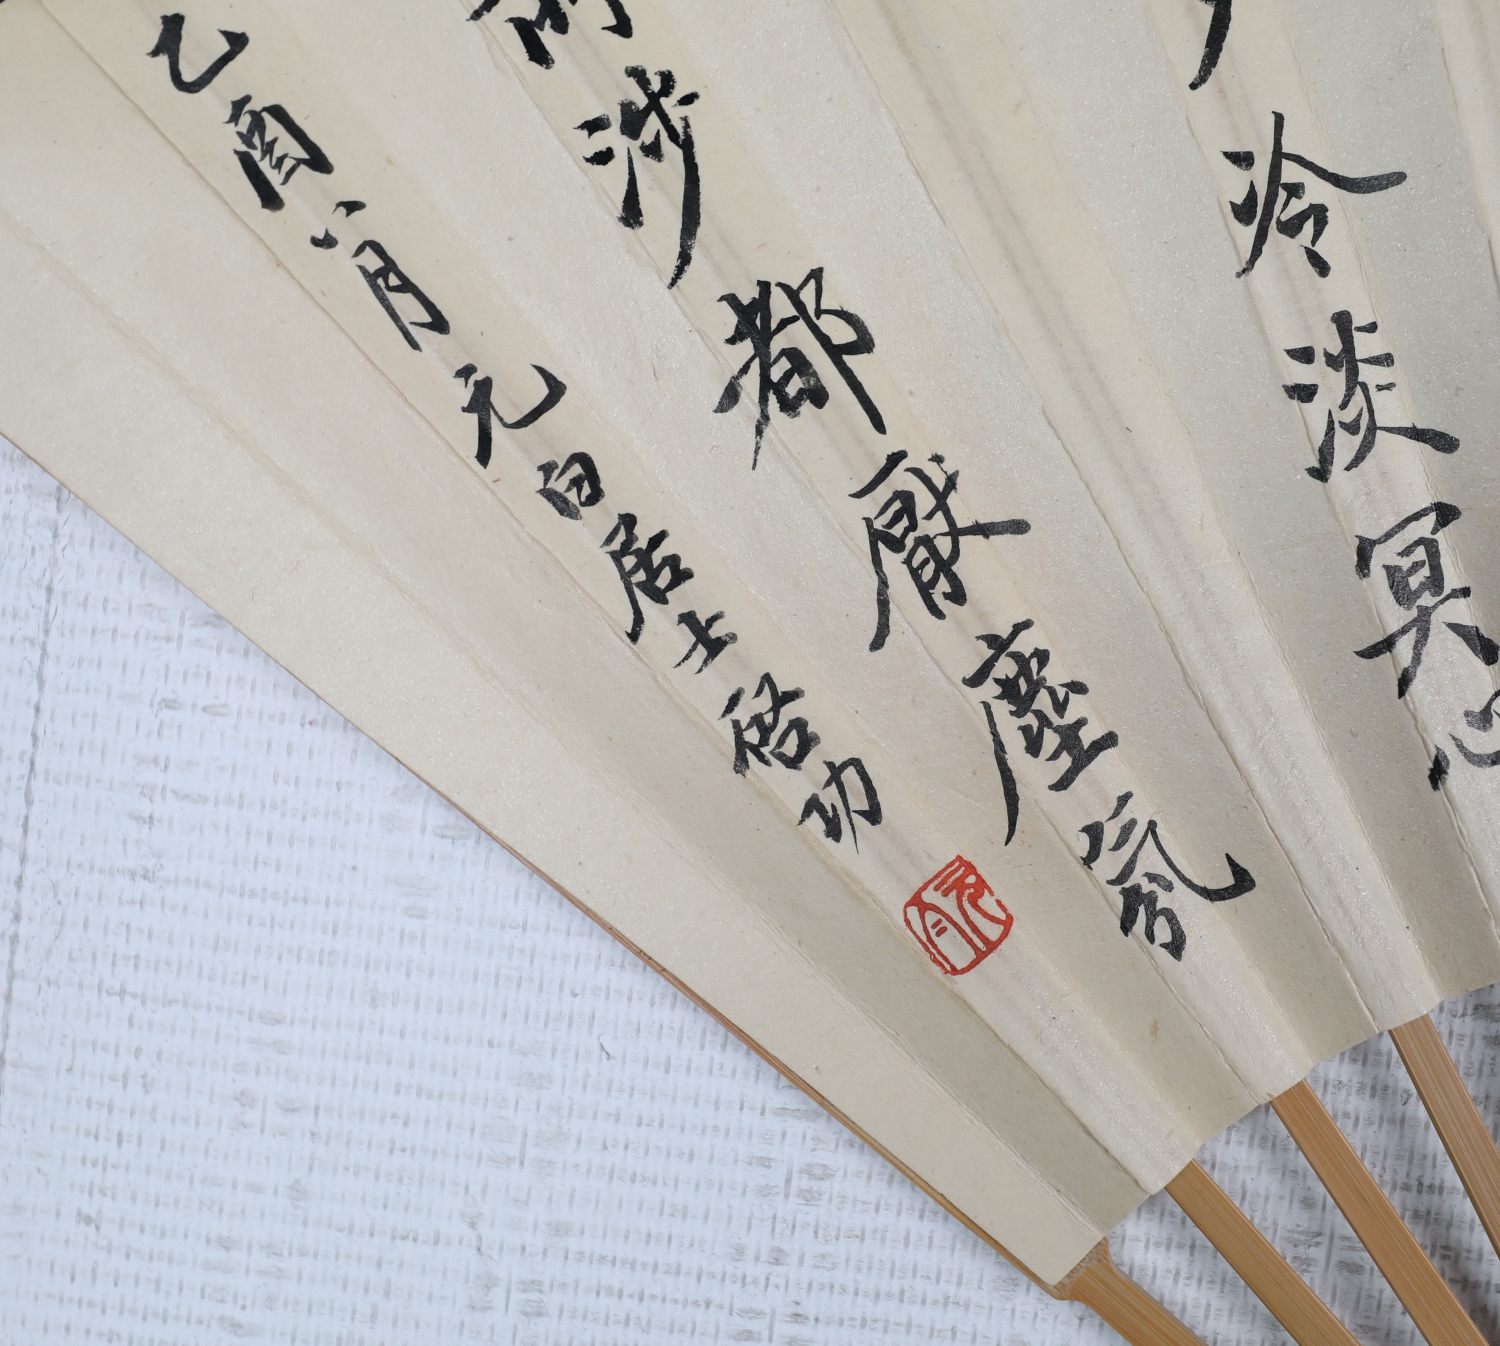 冷淡冥心
涉都厭塵氛
乙酉八月元白居士啓功
元白